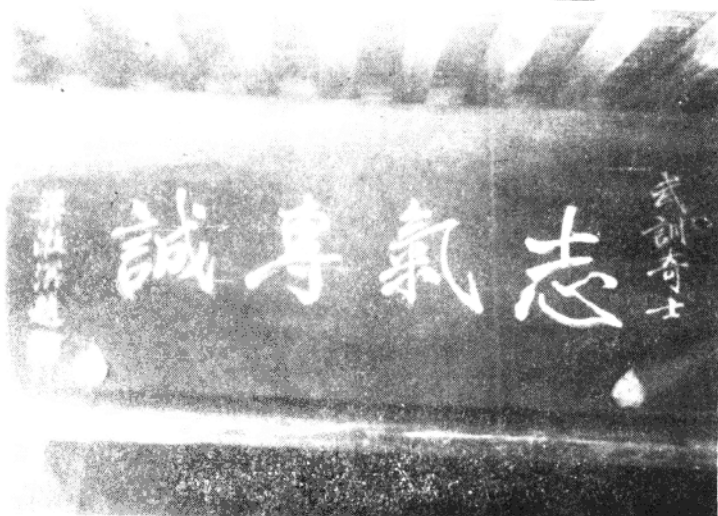 武訓奇士
志氣專誠